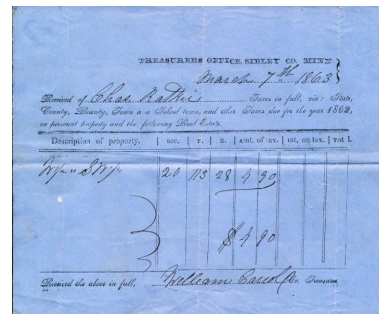 TREASURERS OFFICE, SIBLEY CO. MINN.
March 7th 1863
Received of Chas. Taxes in full, viz: State,
County, Bounty, Town and School taxes, and other Taxes due for the year 1862,
on personal property and the following Real Estate.
Description of property. | sec. | T. | R. | amt. of tax. | int. on tax. | tot l.
20 113 28 4 90
$ 4 90
Received the above in full, William Co. Treasurer